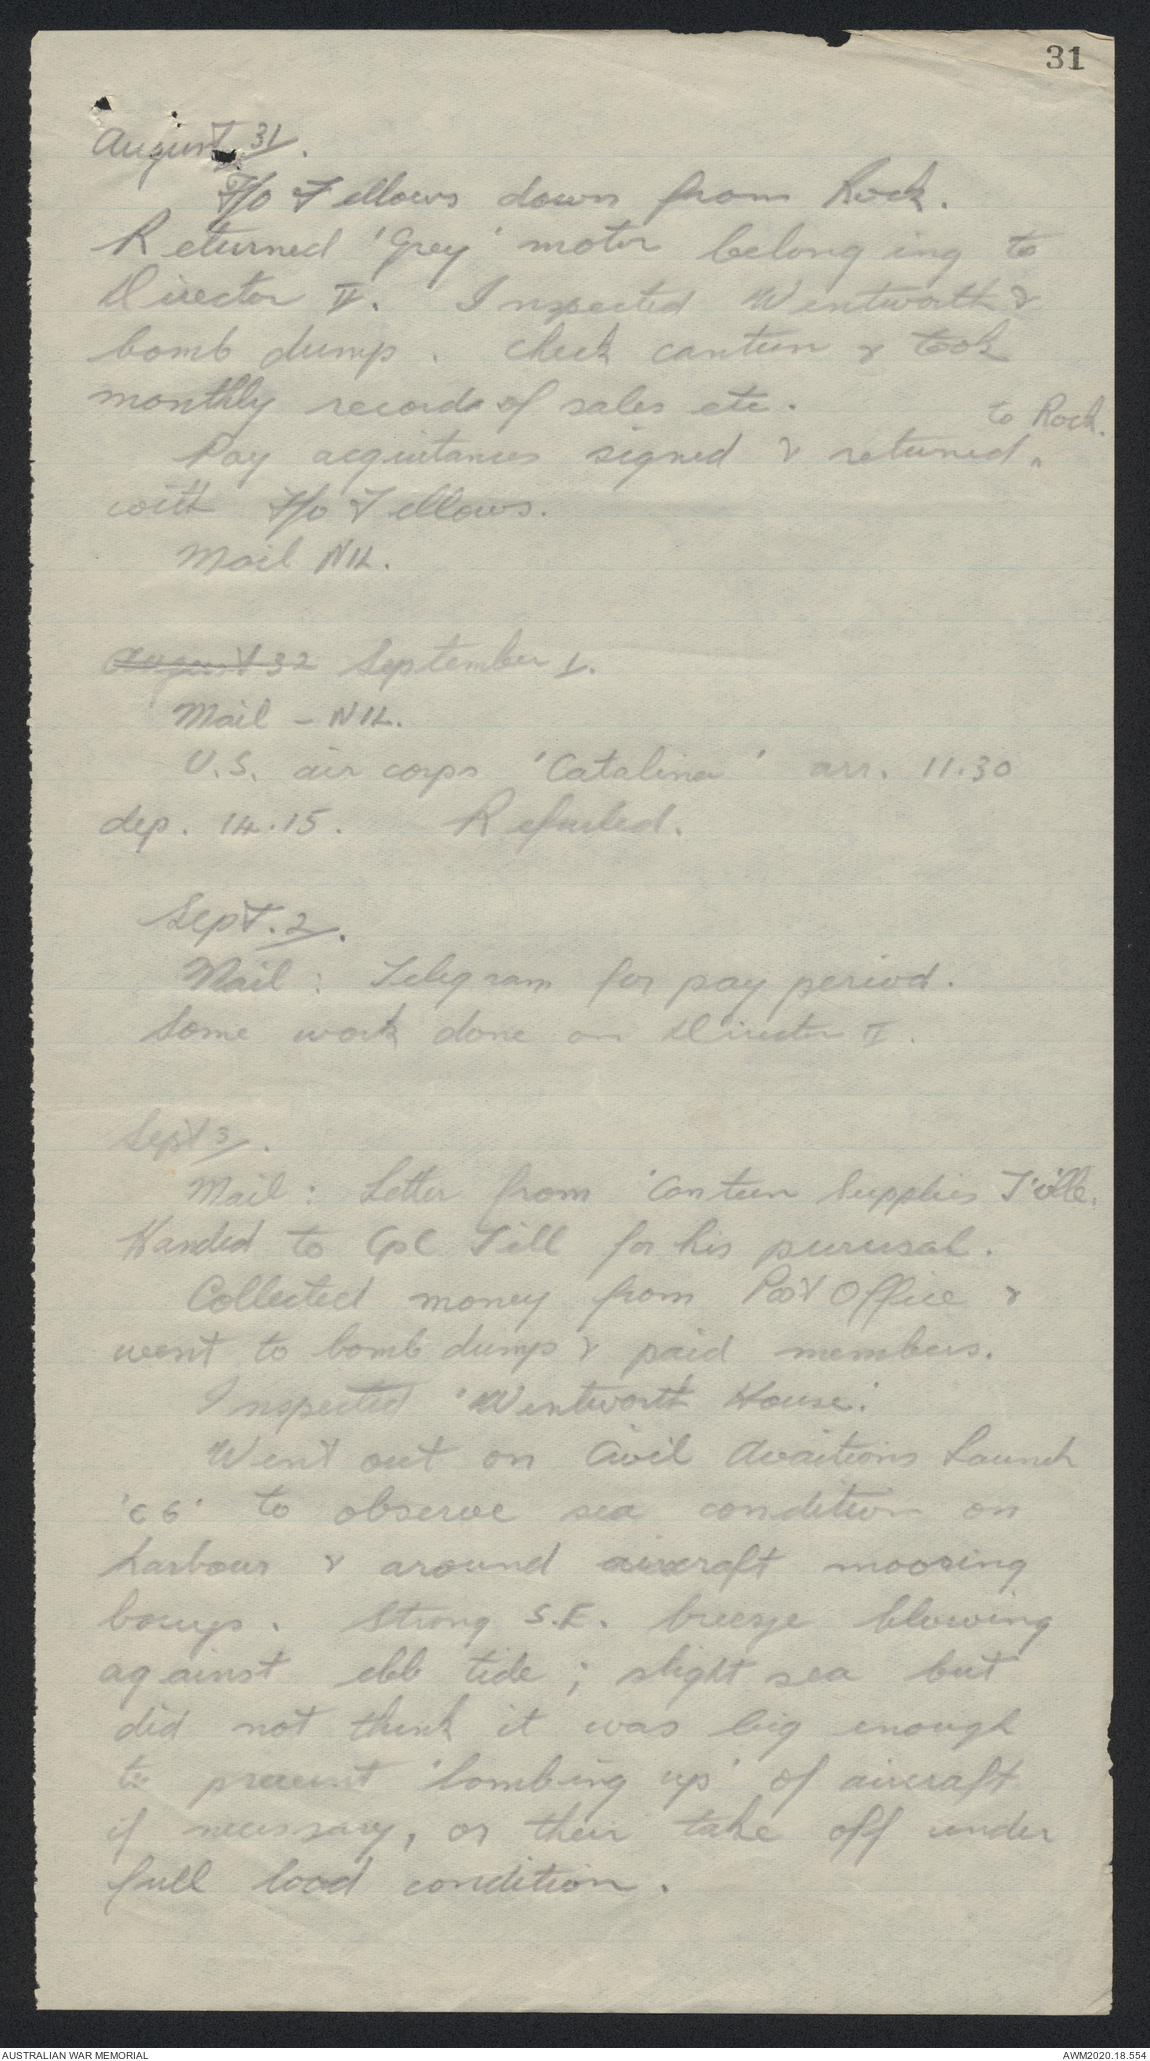 31
August 31.
F/O Fellows down from Rock.
Returned 'Grey' motor belonging to
Director II. Inspected Wentworth &
bomb dump. Check canteen & took
monthly records of sales etc.
to Rock.
Pay acquitances signed & returned "
with F/O Fellows.
Mail NIL.
August 32 September 1.
Mail - NIL.
U.S. air corps 'Catalina' arr. 11.30
dep. 14.15. Refueled.
Sept. 2.
Mail: Telegram for pay period.
Some work done on Director II.
Sept 3.
Mail: Letter from 'Canteen Supplies T'ville.
Handed to Cpl Till for his purusal.
Collected money from Post Office &
went to bomb dump & paid members.
Inspected 'Wentworth House'.
Went out on Civil Avaitions Launch
'C6' to observe sea condition on
harbour & around aircraft mooring
bouys. Strong S.E. breeze blowing
against ebb tide; slight sea but
did not think it was big enough
to prevent 'bombing up' of aircraft
if necessary, or their take off under
full load condition.
AUSTRALIAN WAR MEMORIAL
AWM2020.18.554